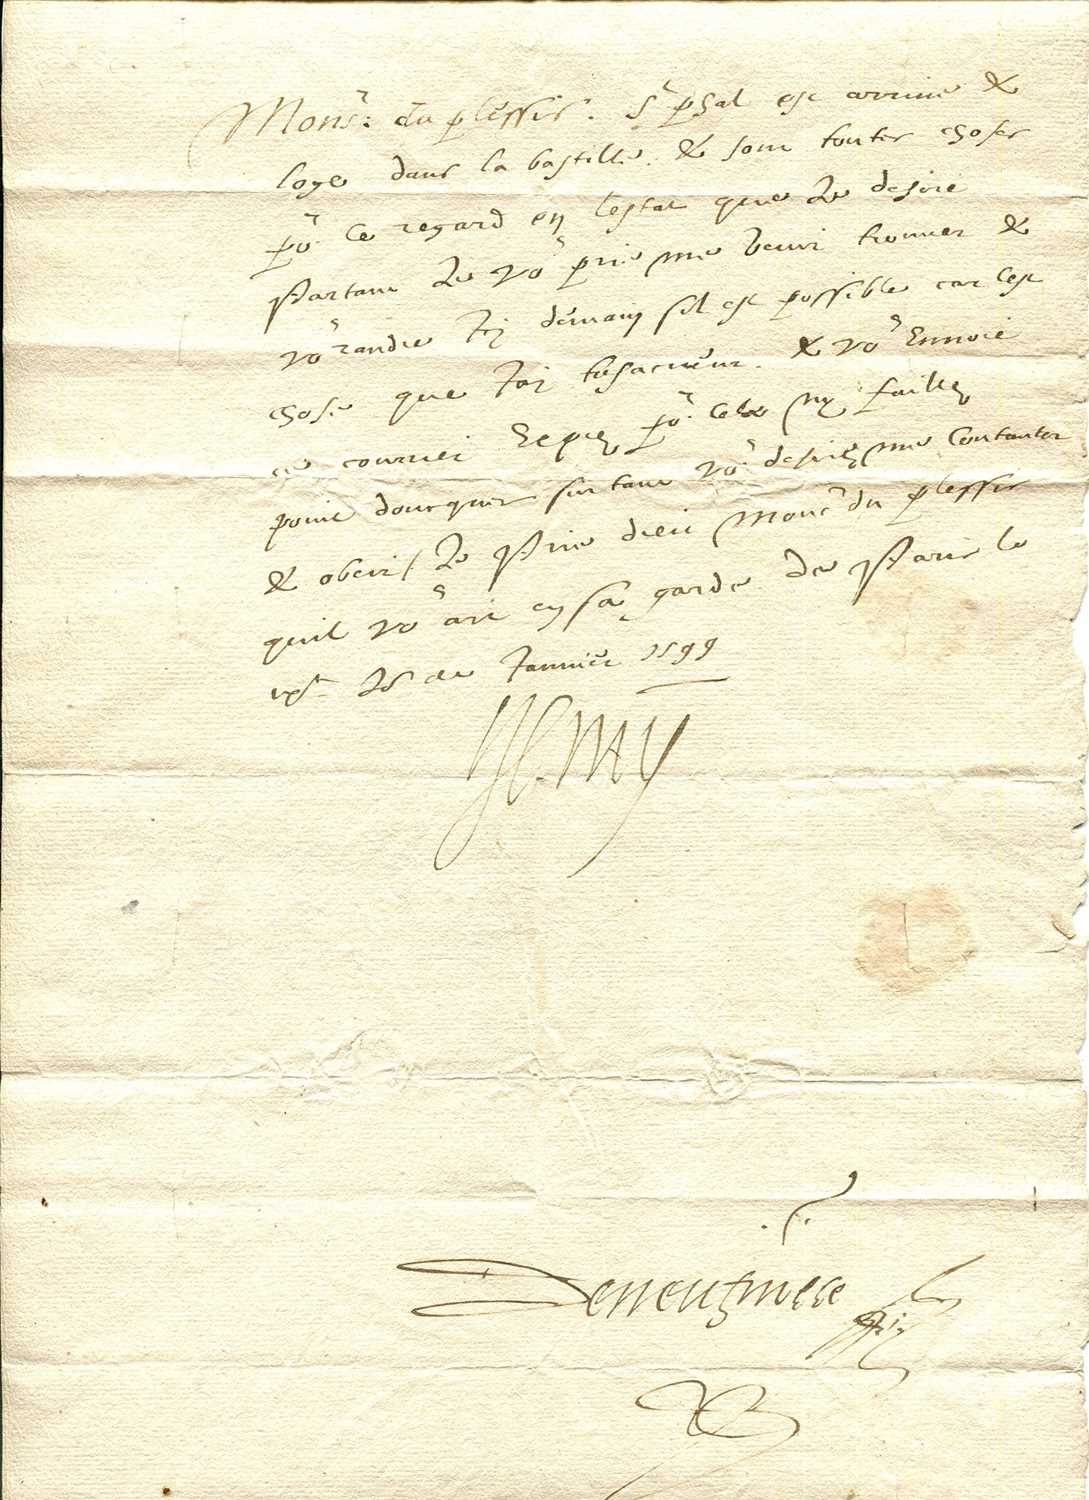 Monsr. du plessis. St phal est arrive &
loge dans la bastille. & sont toutes choses
por ce regard en lestat que Je desire
Partant Je vos prie me venir trouver &
vos randre Icy demain sil est possible car cest
chose que Jay tresacueur. & vos Ennoie
ce courrier Expres por cela Ny failles
point doncques sur tant vos desires me Contanter
& obeir / Je Prie dieu Monsr du plessis
quil vos ait en sa garde De Paris le
Jor de Janvier 1599
Henry
Deneufville